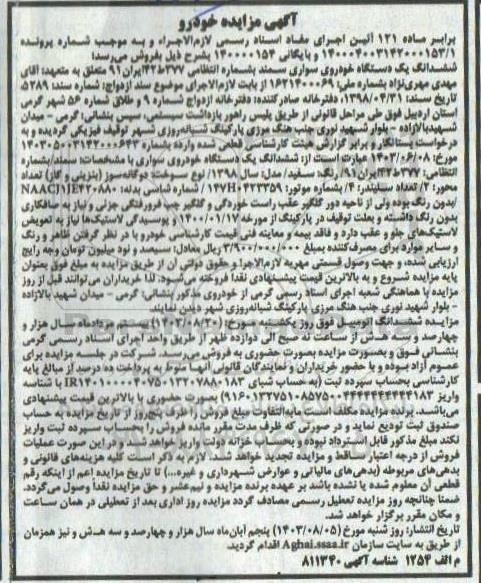 آگهی مزایده خودرو
برابر ماده ۱۲۱ آئین اجرای مفاد اسناد رسمی لازم‌الاجراء و به موجب شماره پرونده
۱۴۰۰۰۴۰۰۳۱۴۲۰۰۰۱۵۳/۱ و بایگانی ۱۴۰۰۰۰۱۵۴ بشرح ذیل بفروش می‌رسد:
ششدانگ یک دستگاه خودروی سواری سمند بشماره انتظامی ۳۷۷ط۴۲ایران۹۱ متعلق به متعهد: آقای
مهدی مهری‌نژاد بشماره ملی: ۱۶۲۱۴۰۰۰۶۹ از بابت لازم‌الاجرای موضوع سند ازدواج: شماره سند: ۵۲۸۹
تاریخ سند: ۱۳۹۸/۰۴/۳۱، دفترخانه صادرکننده: دفترخانه ازدواج شماره ۹ و طلاق شماره ۵۶ شهر گرمی
استان اردبیل فوق طی مراحل قانونی از طریق پلیس راهور بازداشت سیستمی، سپس بنشانی: گرمی - میدان
شهیدبالازاده - بلوار شهید نوری جنب هنگ مرزی پارکینگ شبانه‌روزی شهر توقیف فیزیکی گردیده و به
درخواست بستانکار و برابر گزارش هیئت کارشناسی قطعی شده وارده بشماره ۱۴۰۳۰۵۰۰۳۱۴۲۰۰۰۶۴۳
مورخ: ۱۴۰۳/۰۶/۰۸ عبارت است از: ششدانگ یک دستگاه خودروی سواری با مشخصات: سمند/بشماره
انتظامی: ۳۷۷ط۴۲ایران۹۱/ رنگ: سفید/ مدل: سال ۱۳۹۸/ نوع سوخت: دوگانه‌سوز (بنزینی و گاز) تعداد
محور: ۲/ تعداد سیلندر: ۴/ بشماره موتور: ۱۴۷H۰۴۲۳۳۵۹/ شماره شاسی بدنه: NAACJ۱JE۴۲۰۸۸۰
/بدون رنگ بوده ولی از ناحیه دور گلگیر عقب راست خوردگی و گلگیر چپ فرورفتگی جزئی و نیاز به صافکاری
بدون رنگ داشته و بعلت توقیف در پارکینگ از مورخه ۱۴۰۰/۰۱/۱۷ و پوسیدگی لاستیک‌ها نیاز به تعویض
لاستیک‌های جلو و عقب دارد و فاقد بیمه و معاینه فنی قیمت کارشناسی خودرو با در نظر گرفتن ظاهر و رنگ
و سایر موارد برای مصرف‌کننده بمبلغ ۳/۹۰۰/۰۰۰/۰۰۰ ریال معادل: سیصد و نود میلیون تومان وجه رایج
ارزیابی شده، و جهت وصول قسمتی مهریه لازم‌الاجرا و حقوق دولتی آن از طریق مزایده به مبلغ فوق بعنوان
پایه مزایده شروع و به بالاترین قیمت پیشنهادی نقداً فروخته می‌شود. لذا خریداران می‌توانند قبل از روز
مزایده با هماهنگی شعبه اجرای اسناد رسمی گرمی از خودروی مذکور بنشانی: گرمی - میدان شهید بالازاده
- بلوار شهید نوری جنب هنگ مرزی پارکینگ شبانه‌روزی شهر دیدن نمایند.
مزایده ششدانگ اتومبیل فوق روز یکشنبه مورخ: ۱۴۰۳/۰۸/۲۰ سال هزار و
چهارصد و سه هـ.ش از ساعت نه صبح الی دوازده ظهر از طریق واحد اجرای اسناد رسمی گرمی
بنشانی فوق و بصورت مزایده بصورت حضوری به فروش می‌رسد. شرکت در جلسه مزایده برای
عموم آزاد بوده و با حضور خریداران و نمایندگان قانونی آنها منوط به پرداخت ده درصد از مبالغ پایه
کارشناسی بحساب سپرده ثبت (به حساب شبای IR۱۴۰۱۰۰۰۰۴۰۷۵۰۱۳۲۰۷۸۸۰۱۸۳ با شناسه
واریز) بصورت حضوری با بالاترین قیمت پیشنهادی
می‌باشند. برنده مزایده مکلف است مابه‌التفاوت مبلغ فروش را ظرف پنج‌روز از تاریخ مزایده به حساب
صندوق ثبت تودیع نماید و در صورتی که ظرف مدت مقرر مانده فروش را بحساب سپرده ثبت واریز
نکند مبلغ مذکور قابل استرداد نبوده و بحساب خزانه دولت واریز خواهد شد. در این صورت عملیات
فروش از درجه اعتبار ساقط و مزایده تجدید خواهد شد. لازم به ذکر است کلیه هزینه‌های قانونی و
بدهی‌های مربوطه (بدهی‌های مالیاتی و عوارض شهرداری و غیره...) تا تاریخ مزایده اعم از اینکه رقم
قطعی آن معلوم شده یا نشده باشد بر عهده برنده مزایده و نیم‌عشر و حق مزایده نقداً وصول می‌گردد.
ضمناً چنانچه روز مزایده تعطیل رسمی مصادف گردد مزایده روز اداری بعد از تعطیلی در همان ساعت
و مکان مقرر برگزار خواهد شد.
تاریخ انتشار: روز شنبه مورخ (۱۴۰۳/۰۸/۰۵) پنجم آبان‌ماه سال هزار و چهارصد و سه هـ.ش و نیز همزمان
از طریق به سایت سازمان Aghai.ssaa.ir اقدام گردید.
م الف ۱۲۵۴ شناسه آگهی ۸۱۱۳۴۰